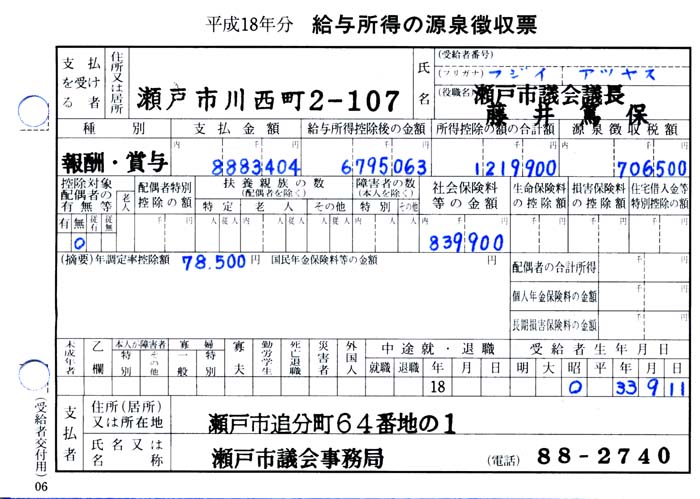 平成18年分 給与所得の源泉徴収票
支払を受ける者 住所又は居所 瀬戸市川西町2-107 氏名 (受給者番号)
(フリガナ) フジイ アツヤス
(役職名) 瀬戸市議会議長
藤井篤保
種別 支払金額 給与所得控除後の金額 所得控除の額の合計額 源泉徴収税額
内 千 円 千 円 千 円 内 千 円
報酬・賞与 8883404 6795063 1219900 706500
控除対象配偶者の有無等 老人 配偶者特別控除の額 扶養親族の数(配偶者を除く) 障害者の数(本人を除く) 社会保険料等の金額 生命保険料の控除額 損害保険料の控除額 住宅借入金等特別控除の額
特定 老人 その他 特別 その他
有 無 従有 従無 千 円 人 従人 内 人 従人 人 従人 内 人 人 内 千 円 千 円 千 円 千 円
0 839900
(摘要)年調定率控除額 78.500円 国民年金保険料等の金額 円
配偶者の合計所得 千 円
個人年金保険料の金額
長期損害保険料の金額
未成年者 乙欄 本人が障害者 特別 その他 寡婦 一般 特別 寡夫 勤労学生 死亡退職 災害者 外国人 中途就・退職 受給者生年月日
就職 退職 年 月 日 明 大 昭 平 年 月 日
18 0 33 9 11
支払者 住所(居所)又は所在地 瀬戸市追分町64番地の1
氏名又は名称 瀬戸市議会事務局 (電話) 88-2740
(受給者交付用)
06